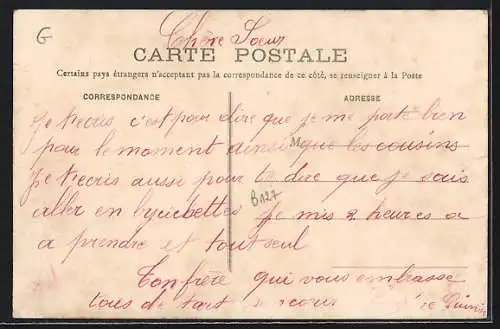 G
Chère Soeur
CARTE POSTALE
Certains pays étrangers n'acceptant pas la correspondance de ce côté, se renseigner à la Poste
CORRESPONDANCE
ADRESSE
Je t'ecris c'est pour dire que je me porte bien
pour le moment ainsi que les cousins
M
Je t'ecris aussi pour te dire que je sais
aller en bycicbettes je mis 2 heures a
B127
a prendre et tout seul
Ton frère qui vous embrasse
tous de tart